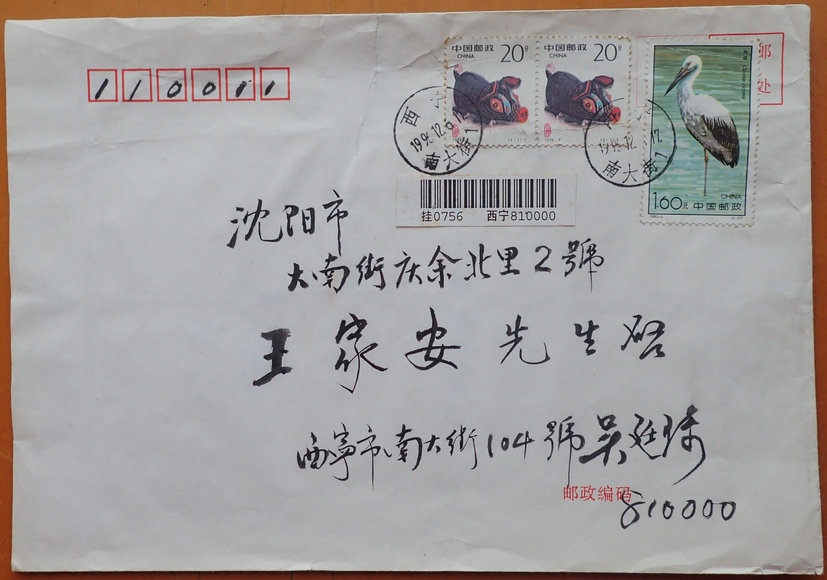 110011
中国邮政 20分
CHINA
中国邮政 20分
CHINA
CHINA
1.60元 中国邮政
邮
处
西
南大街1
南大街1
挂0756 西宁810000
沈阳市
大南街庆余北里2號
王家安先生啓
西寧市南大街104號吴廷琦
邮政编码
810000